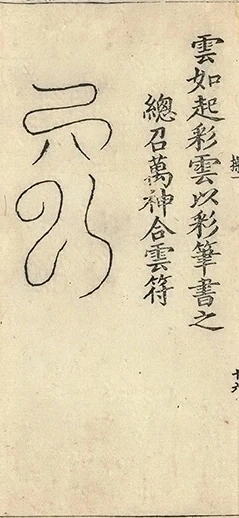 雲如起彩雲以彩筆書之
總召萬神合雲符
十六